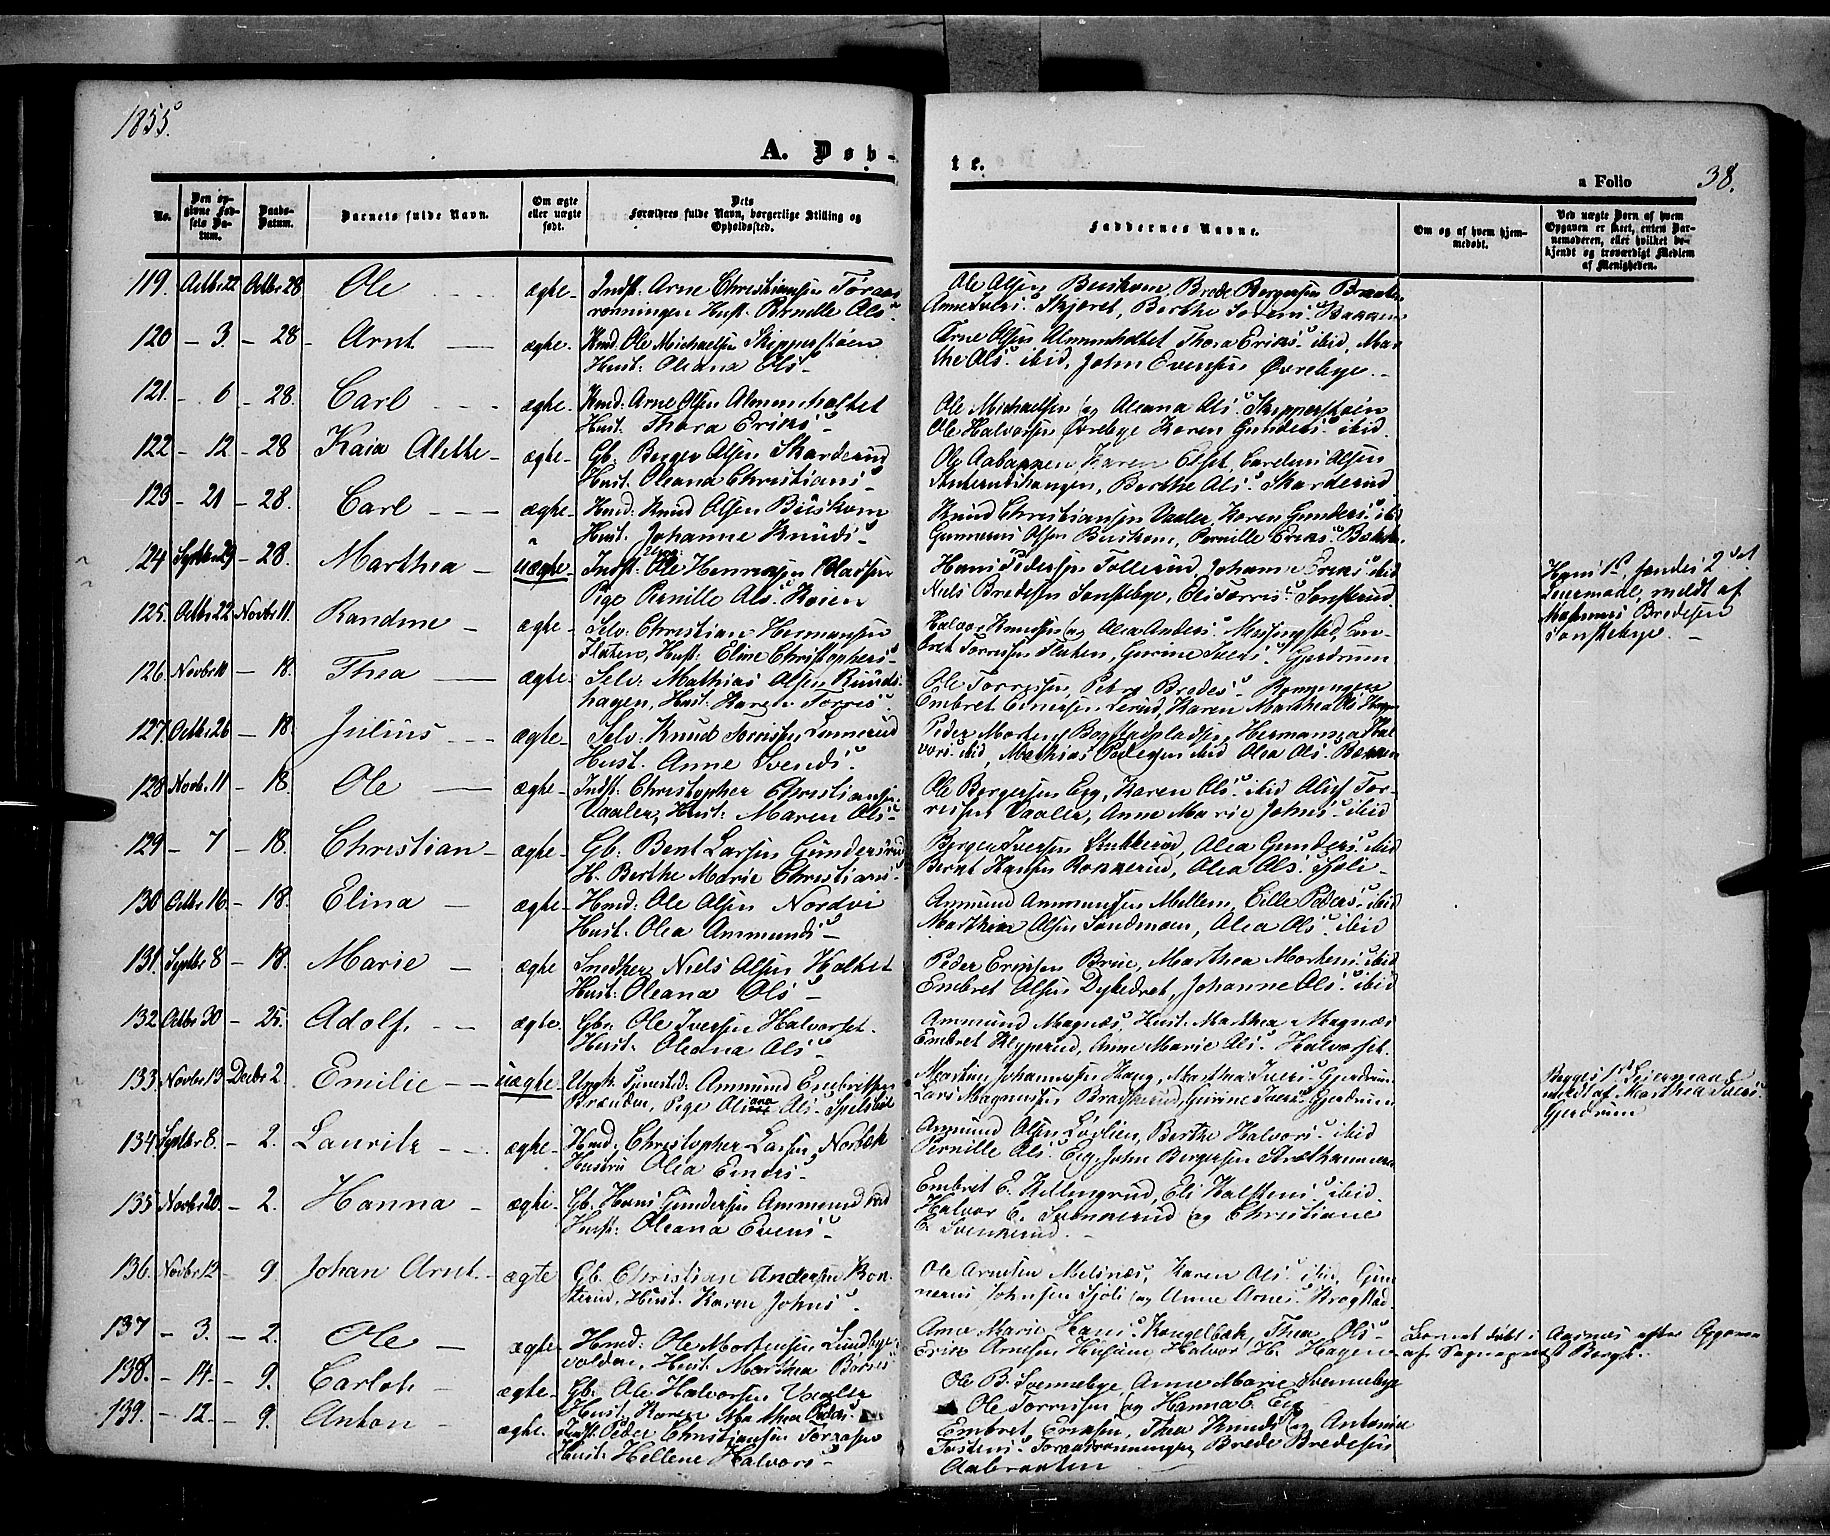 1855.
A. Døb-
te.
a Folio 38.
No.
Den op-
givne Fød-
sels Da-
tum.
Daabs-
Datum.
Barnets fulde Navn.
Om ægte
eller uægte
født.
Dets
Forældres fulde Navn, borgerlige Stilling og
Opholdssted.
Faddernes Navne.
Om og af hvem hjem-
medøbt.
Ved uægte Born af hvem
Opgaven er skeet, enten Bar-
nemoderen, eller hvilket be-
kjendt og troværdigt Medlem
af Menigheden.
119. Octbr 22 Octbr 28 Ole ægte Indst. Arne Christiansen
Hust. Pernille Ols
Ole Olsen Buskom, Brede Bergersen Braaten
Anne Ivers. Skjøret, Berthe Bakken
120 - 3 - 28 - Arnt ægte. Hmd. Ole Michaelsen Skipperstøen
Hust. Oleana Ols
Arne Olsen Almenholtet Thora Eriks. ibid, Mar-
the Ols. ibid, John Evensen Øvrebye.
121. - 6 - 28. Carl ægte. Hmd. Arne Olsen Almenholtet
Hust. Thora Eriks
Ole Michaelsen og Oleana Ols. Skipperstøen
Ole Halvorsen Øvrebye Karen Gunders. ibid.
122 - 12 - 28 Kaia Alette ægte Gb. Berger Olsen Skarderud
Hust. Oleana Christians
Ole Aabakken, Karen Olset, Olsen
Berthe Ols. Skarderud
123 - 21 - 28. Carl ægte Hmd: Knud Olsen Buskom
Hust. Johanne Knuds
Knud Christiansen Vaaler, Karen Gunders. ibid
Gunnerus Olsen Buskom, Pernille Eriks.
124 Septbr 29 - 28. Marthea uægte Indst. Ole Henriksen
Pige Pernille Ols. Koien
Hans Pedersen Tollerud, Johanne Eriks ibid
Niels Bredesen Sonstebye, Eli Torris.
Hans 1st, hendes 2det
Leiermaal, meldt af
Bredesen
Sonstebye.
125. Octbr 22 Novbr 11. Randine ægte Selv. Christian Hermansen
Flaten, Hust. Eline Christophers
Halvor Knudsen og Olea Anders. Messingstad, Em-
bret Torrisen Flaten, Gurine Ivers. Gjerdrum
126 Novbr 11 - 18. Thea ægte Selv. Mathias Olsen Ruuds-
hagen, Hust. Karen Torris
Ole Torrisen, Petra Bredes.
Embret Lerud, Karen Marthea Ols.
127. Octbr 26 - 18. Julius ægte Selv. Knud Torrisen
Hust. Anne Svends.
Peder Morten Bogstadpladsen, Hermansen Hal-
vors. ibid, Mathias Pedersen ibid Olea Ols. Bakken
128 Novbr. 11 - 18. Ole ægte Indst. Christopher Christiansen
Vaaler, Hust: Maren Ols
Ole Bergersen Egg, Karen Ols. ibid Tor-
risen Vaaler, Anne Marie Johns. ibid
129 - 7 - 18. Christian ægte Gb. Bent Larsen Gundersrud
H. Berthe Marie Christians
Berger Iversen Stubberud, Olea Gunders. ibid
Bernt Hansen Rokkerud, Olea Ols. Sjøli
130 Octbr 16 - 18. Elina ægte Hmd: Ole Olsen Nordvi
Hust. Olea Ammunds
Ammund Ammundsen Mellem, Eille Peders. ibid
Marthin Olsen Sandmoen, Olea Ols. ibid
131. Septbr 8 - 18. Marie ægte Snedker Niels Olsen Holtet
Hust. Oleana Ols
Peder Eriksen Brue, Marthea Mortens. ibid
Embret Olsen Dyhedret, Johanne Ols. ibid
132 Octbr 30 - 25. Adolf ægte Gbr. Ole Iversen Halvorset.
Hust: Oleana Ols
Ammund Magnæs, Hust. Marthea Magnæs
Embret Klypsrud, Anne Marie Ols. Halvorset.
133 Novbr 13 Decbr 2. Emilie uægte Ungk. Ammund Embretsen
Brænden, Pige Oliana Ols.
Martin Johannesen Haug, Marthea Ivers. Gjerdrum
Lars Magnussen Braskerud, Gurine Ivers. Gjerdrum
Begges 1st Leiermaal
meldt af Marthea Ivers.
Gjerdrum
134 Septbr 8. - 2. Lauritz ægte Hmd. Christopher Larsen Norbek
Hustru Olea Eners
Ammund Olsen Berthe Halvors. ibid
Pernille Ols. Egg, John Bergersen
135 Novbr 20 - 2. Hanna ægte Gb. Hans Gundersen Ammundrud
Hust: Oleana Evens
Embret E. Killingrud, Eli Kalstens. ibid.
Halvor E. Svenkerud og Christiane
E. Svenkerud.
136. Novbr 12 - 9. Johan Arnt ægte Gb. Christian Andersen Kon-
sterud, Hust. Karen Johns.
Ole Arnesen Melinæs, Karen Ols. ibid, Gun-
nerus Johnsen Sjøli og Anne Arnes. Krogstad
137 - 3. - 2. Ole ægte Hmd: Ole Mortensen Lundbye-
volden, Hust. Marthea
Anne Marie Hans. Kongelbek, Thea Ols
Erik Arnesen Husum, Halvor H. Hagen
Barnet døbt i Aasnæs efter Opgave
af Sognepræst Bergh.
138. - 14. - 9. Carloh ægte Gb. Ole Halvorsen Vaaler
Hust. Karen Marthea Peders
Ole B. Svennebye, Anne Marie Svennebye
Ole Torrisen og Hanna C. Eg
139. - 12. - 9. Anton ægte. Indst. Peder Christiansen
Hust: Hellene Halvors
Embret Eriksen, Thea Knuds. og Antonie
Tostens. Brede Bredesen
Aabraaten